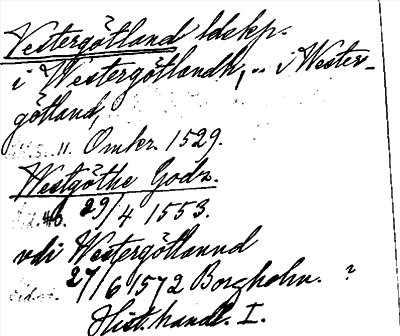 Vestergötland ldskp.
i Westergötlandh, .. i Wester-
götland,
11. Omkr. 1529.
Westgöthe Godz.
29/4 1553.
vdi Westergötlannd
27/6 1572 Borgholm. ?
Hist. handl. I.